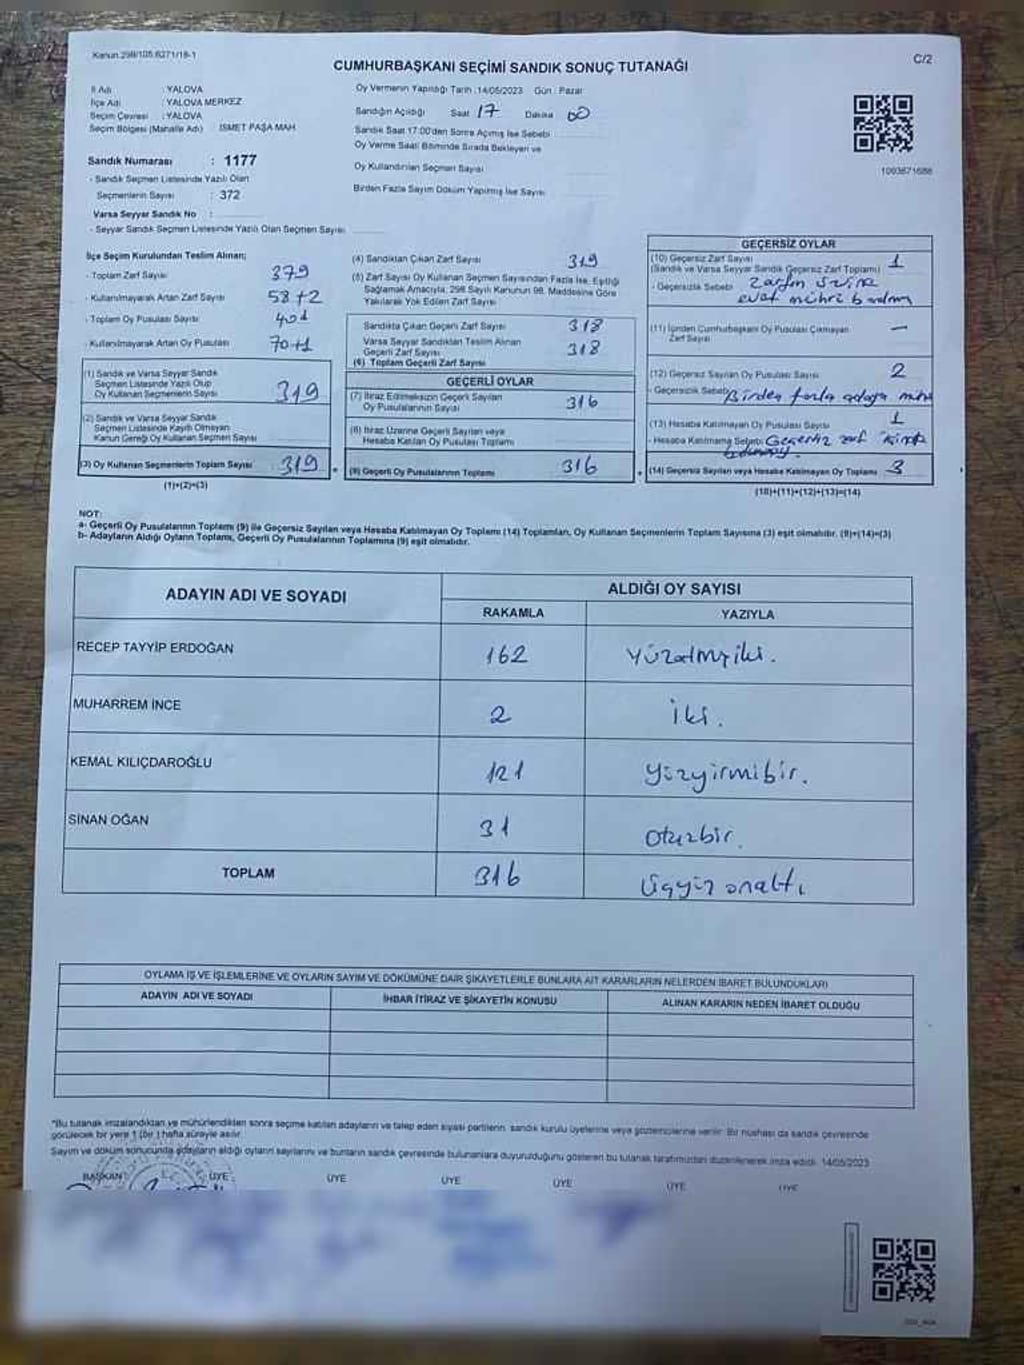 Kanun.298/105.6271/18-1
C/2
CUMHURBAŞKANI SEÇİMİ SANDIK SONUÇ TUTANAĞI
İl Adı : YALOVA
İlçe Adı : YALOVA MERKEZ
Seçim Çevresi : YALOVA
Seçim Bölgesi (Mahalle Adı) İSMET PAŞA MAH
Sandık Numarası : 1177
- Sandık Seçmen Listesinde Yazılı Olan
Seçmenlerin Sayısı : 372
Varsa Seyyar Sandık No :
- Seyyar Sandık Seçmen Listesinde Yazılı Olan Seçmen Sayısı
Oy Vermenin Yapıldığı Tarih :14/05/2023 Gün : Pazar
Sandığın Açıldığı Saat 17 Dakika 00
Sandık Saat 17:00'den Sonra Açmış İse Sebebi
Oy Verme Saati Bitiminde Sırada Bekleyen ve
Oy Kullandırılan Seçmen Sayısı
Birden Fazla Sayım Döküm Yapılmış İse Sayısı
1003671688
İlçe Seçim Kurulundan Teslim Alınan;
- Toplam Zarf Sayısı 379
- Kullanılmayarak Artan Zarf Sayısı 58+2
- Toplam Oy Pusulası Sayısı 401
- Kullanılmayarak Artan Oy Pusulası 70+1
(1) Sandık ve Varsa Seyyar Sandık
Seçmen Listesinde Yazılı Olup
Oy Kullanan Seçmenlerin Sayısı 319
(2) Sandık ve Varsa Seyyar Sandık
Seçmen Listesinde Kayıtlı Olmayan
Kanun Gereği Oy Kullanan Seçmen Sayısı
(3) Oy Kullanan Seçmenlerin Toplam Sayısı 319
(1)+(2)=(3)
(4) Sandıktan Çıkan Zarf Sayısı 319
(5) Zarf Sayısı Oy Kullanan Seçmen Sayısından Fazla İse, Eşitliği
Sağlamak Amacıyla, 298 Sayılı Kanunun 98. Maddesine Göre
Yakılarak Yok Edilen Zarf Sayısı
Sandıkta Çıkan Geçerli Zarf Sayısı 318
Varsa Seyyar Sandıktan Teslim Alınan
Geçerli Zarf Sayısı 318
(6) Toplam Geçerli Zarf Sayısı
GEÇERLİ OYLAR
(7) İtiraz Edilmeksizin Geçerli Sayılan
Oy Pusulalarının Sayısı 316
(8) İtiraz Üzerine Geçerli Sayılan veya
Hesaba Katılan Oy Pusulası Toplamı
(9) Geçerli Oy Pusulalarının Toplamı 316
GEÇERSİZ OYLAR
(10) Geçersiz Zarf Sayısı 1
(Sandık ve Varsa Seyyar Sandık Geçersiz Zarf Toplamı)
- Geçersizlik Sebebi Zarfın
evet mühri
(11) İçinden Cumhurbaşkanı Oy Pusulası Çıkmayan
Zarf Sayısı —
(12) Geçersiz Sayılan Oy Pusulası Sayısı 2
- Geçersizlik Sebebi Birden fazla adaya
(13) Hesaba Katılmayan Oy Pusulası Sayısı 1
- Hesaba Katılmama Sebebi Geçersiz zarf
(14) Geçersiz Sayılan veya Hesaba Katılmayan Oy Toplamı 3
(10)+(11)+(12)+(13)=(14)
NOT:
a- Geçerli Oy Pusulalarının Toplamı (9) ile Geçersiz Sayılan veya Hesaba Katılmayan Oy Toplamı (14) Toplamları, Oy Kullanan Seçmenlerin Toplam Sayısına (3) eşit olmalıdır. (9)+(14)=(3)
b- Adayların Aldığı Oyların Toplamı, Geçerli Oy Pusulalarının Toplamına (9) eşit olmalıdır.
ADAYIN ADI VE SOYADI
ALDIĞI OY SAYISI
RAKAMLA YAZIYLA
RECEP TAYYİP ERDOĞAN 162 Yüzaltmışiki.
MUHARREM İNCE 2 İki.
KEMAL KILIÇDAROĞLU 121 Yüzyirmibir.
SİNAN OĞAN 31 Otuzbir.
TOPLAM 316 Üçyüz onaltı
OYLAMA İŞ VE İŞLEMLERİNE VE OYLARIN SAYIM VE DÖKÜMÜNE DAİR ŞİKAYETLERLE BUNLARA AİT KARARLARIN NELERDEN İBARET BULUNDUKLARI
ADAYIN ADI VE SOYADI İHBAR İTİRAZ VE ŞİKAYETİN KONUSU ALINAN KARARIN NEDEN İBARET OLDUĞU
"Bu tutanak imzalandıktan ve mühürlendikten sonra seçime katılan adayların ve talep eden siyasi partilerin, sandık kurulu üyelerine veya gözlemcilerine verilir. Bir nüshası da sandık çevresinde
görülecek bir yere 1 (bir ) hafta süreyle asılır.
Sayım ve döküm sonucunda adayların aldığı oyların sayılarını ve bunların sandık çevresinde bulunanlara duyurulduğunu gösteren bu tutanak tarafımızdan düzenlenerek imza edildi. 14/05/2023
BAŞKAN ÜYE ÜYE ÜYE ÜYE ÜYE ÜYE